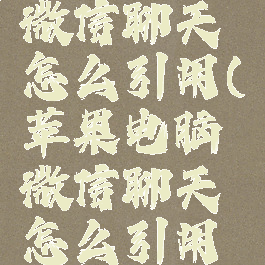 微信聊天
怎么引用(
苹果电脑
微信聊天
怎么引用